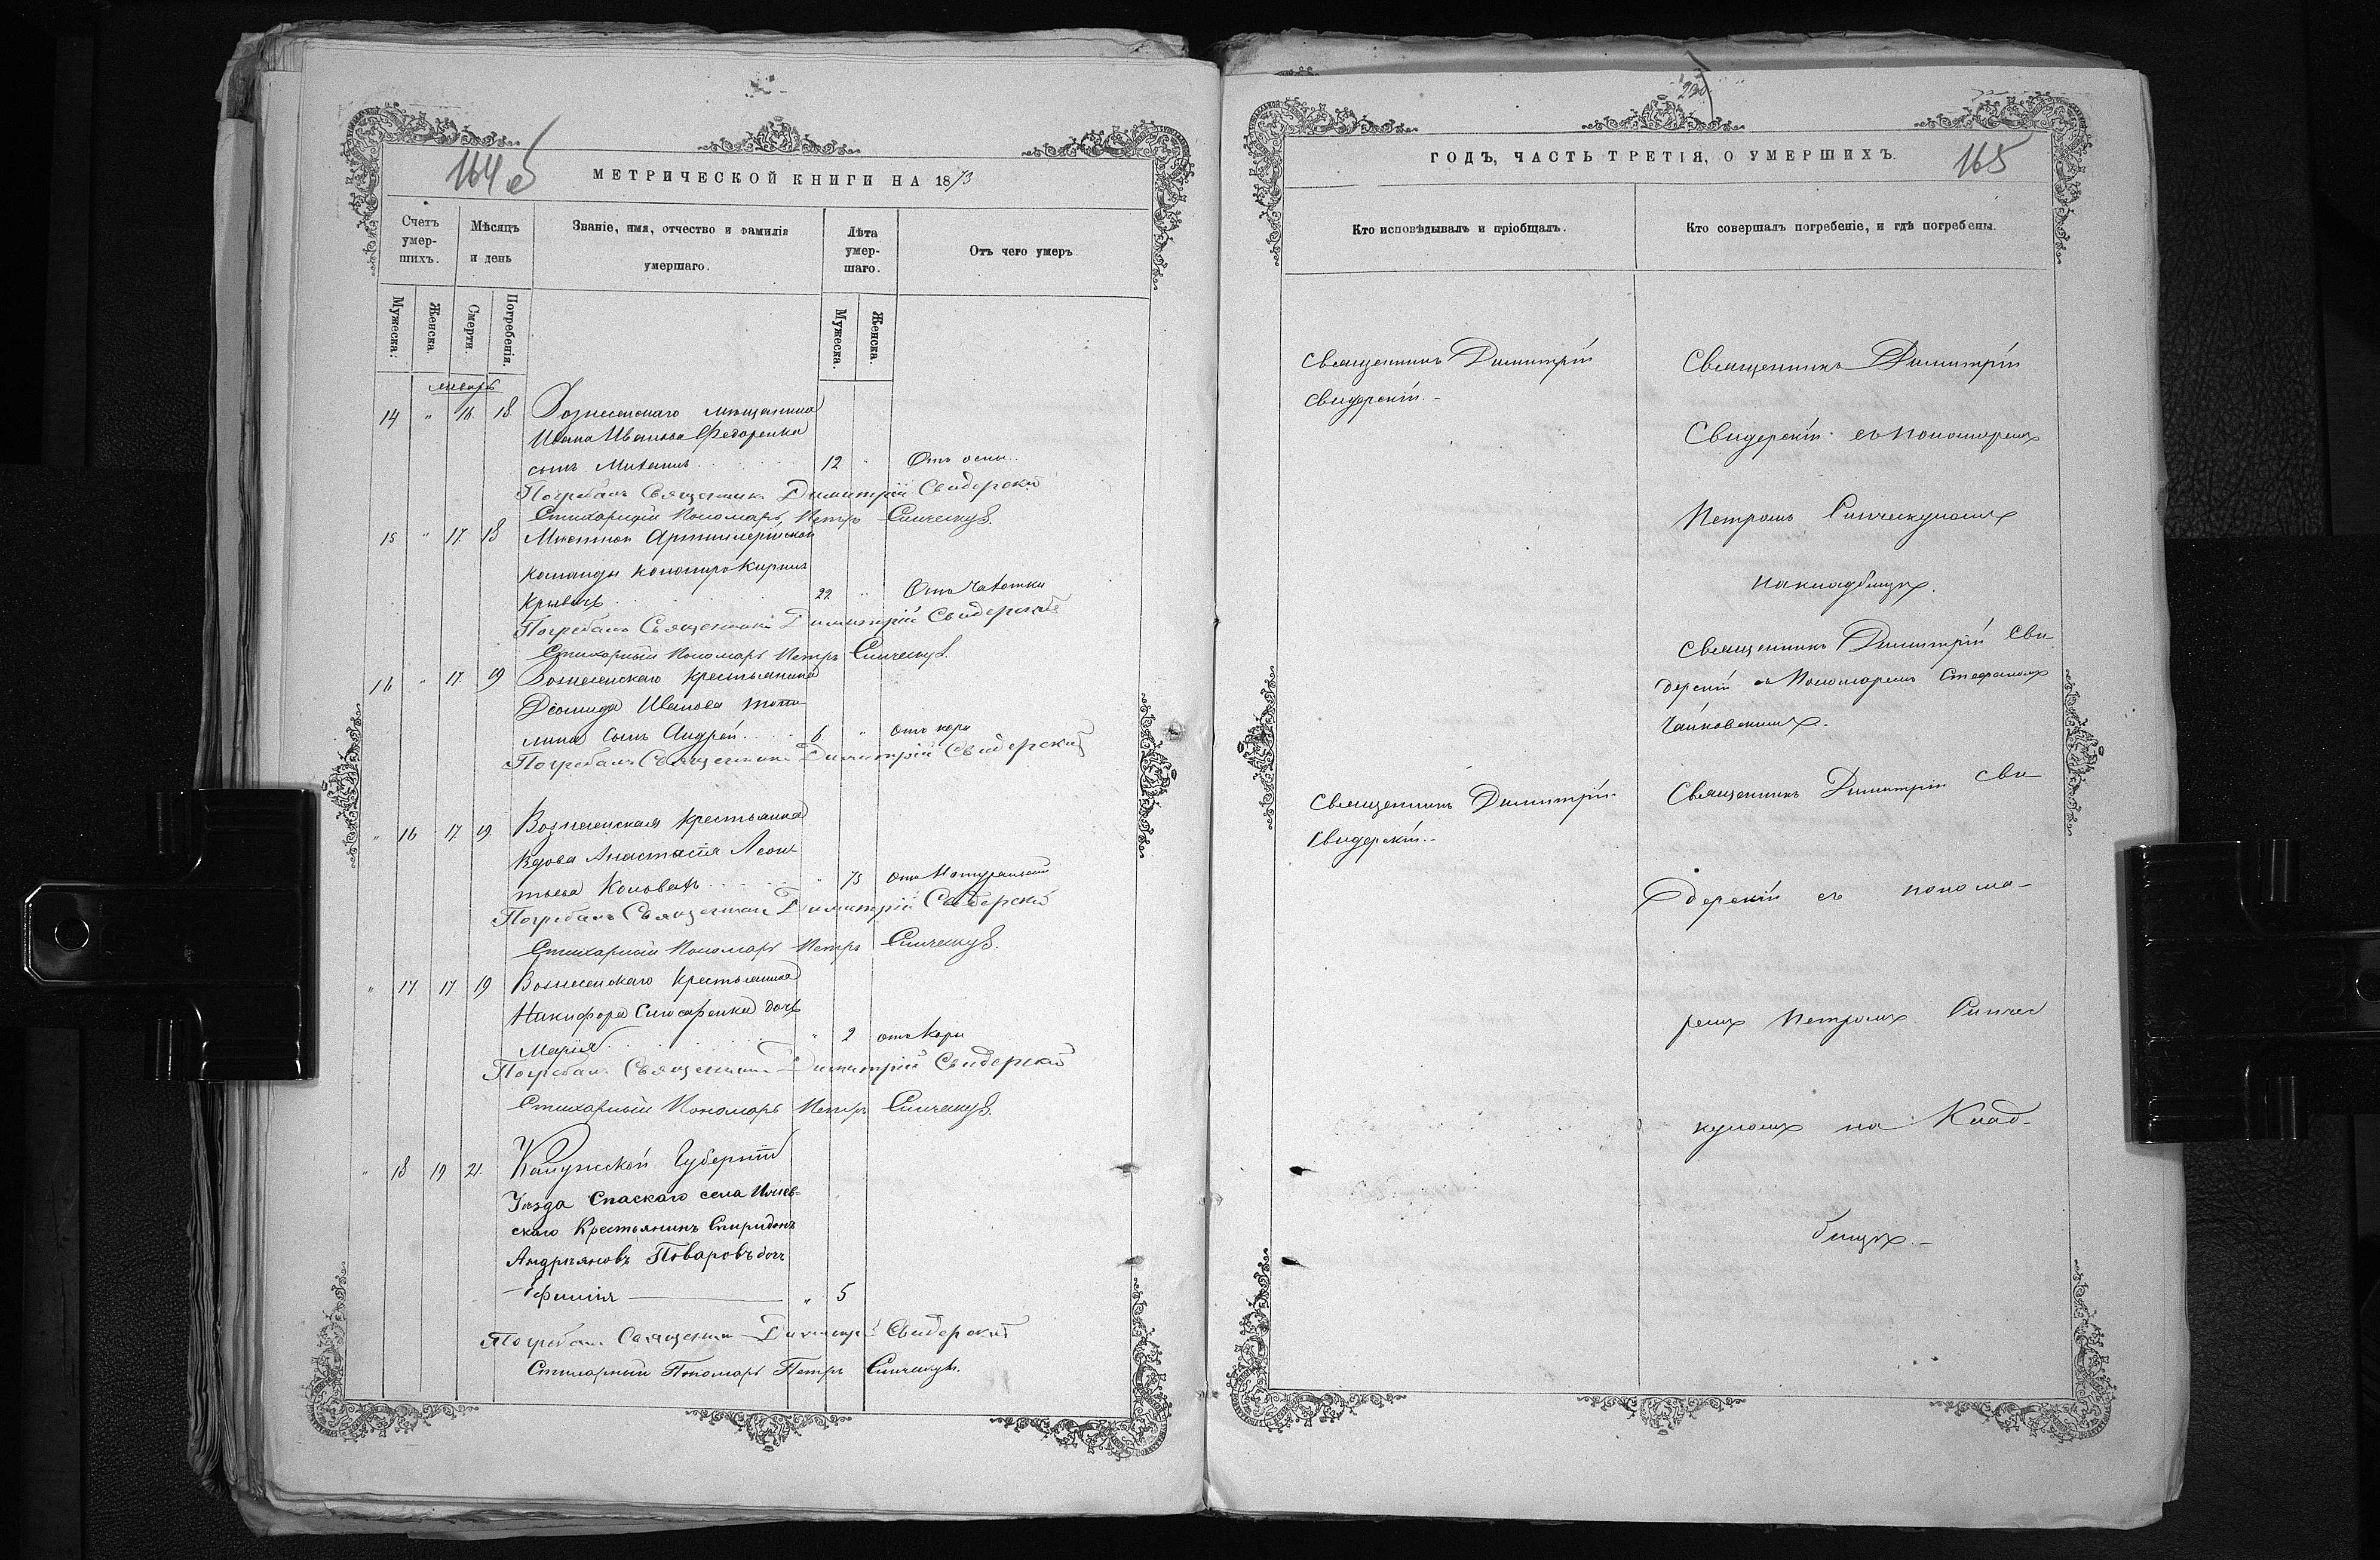 164 об
МЕТРИЧЕСКОЙ КНИГИ НА 1873
Счетъ умер-шихъ.
Мѣсяцъ и день
Званіе, имя, отчество и фамилія умершаго.
Лѣта умер-шаго.
Отъ чего умеръ
Мужеска.
Женска.
Смерти.
Погребенія.
Мужеска.
Женска.
Январь
14 " 16. 18. Вознесенскаго мѣщанина
Ивана Иванова Федоренка
сынъ 12 " Отъ оспы
Погребалъ Священникъ Димитрій Свидерскій
Стихарный Пономарь Петръ
15 " 17. 18 Мѣстной Артиллерійской
команды
22 " Отъ Чахотки
Погребалъ Священникъ Димитрій Свидерскій
Стихарный Пономарь Петръ
16 " 17. 19 Вознесенскаго Крестьянина
Діомида Иванова
сынъ Андрей 6 " отъ кори
Погребалъ Священникъ Димитрій Свидерскій
" 16 17. 19. Вознесенская крестьянка
вдова Анастасія Леон-
тьева 75 отъ Натуральной
Погребалъ Священникъ Димитрій Свидерскій
Стихарный Пономарь Петръ
" 17. 17 19 Вознесенскаго Крестьянина
Никифора Слюсаренка дочь
Марія " 2 отъ Кори
Погребалъ Священникъ Димитрій Свидерскій
Стихарный Пономарь Петръ
" 18 19 21. Калужской Губерніи
Уѣзда Спаскаго села
скаго Крестьянинъ Спиридонъ
Андріяновъ Поваровъ дочь
Ефимія " 5
Погребалъ Священникъ Димитрій Свидерскій
Стихарный Пономарь Петръ
165
ГОДЪ, ЧАСТЬ ТРЕТІЯ, О УМЕРШИХЪ.
Кто исповѣдывалъ и пріобщалъ.
Кто совершалъ погребеніе, и гдѣ погребены.
Священникъ Димитрій
Свидерскій.
Священникъ Димитрій
Свидерскій съ пономаремъ
Петромъ
на кладбищѣ.
Священникъ Димитрій Сви-
дерскій съ Пономаремъ Стефаномъ
Чайковскимъ.
Священникъ Димитрій
Свидерскій.
Священникъ Димитрій Сви-
дерскій съ понома-
ремъ Петромъ
на Клад-
бищѣ.